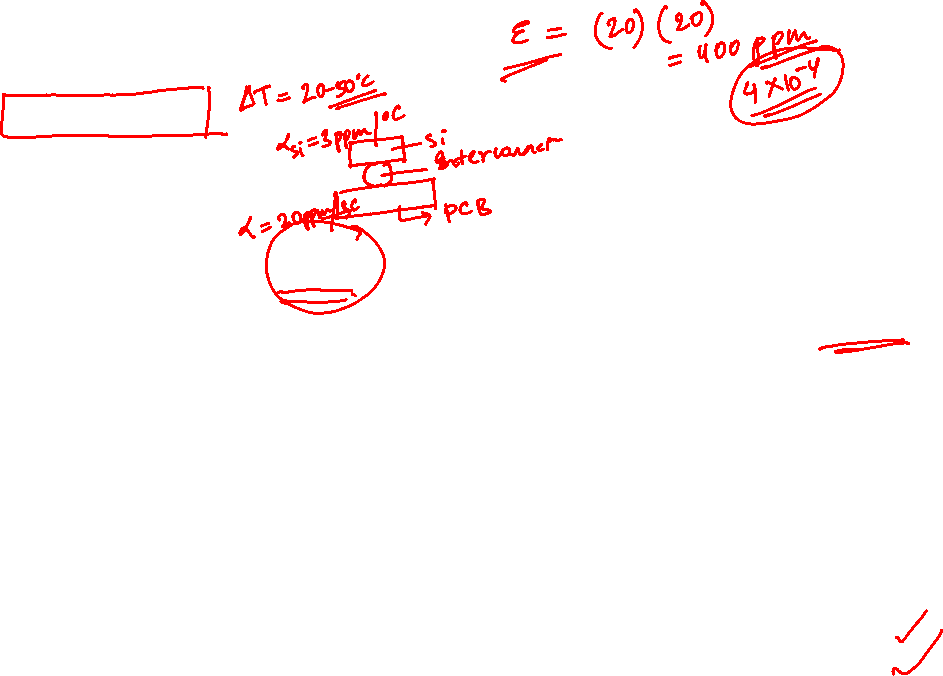 ε = (20) (20)
= 400 ppm
4×10⁻⁴
ΔT = 20-50°C
α_si = 3ppm/°C
Si
Interconnect
α = 20ppm/°C
PCB